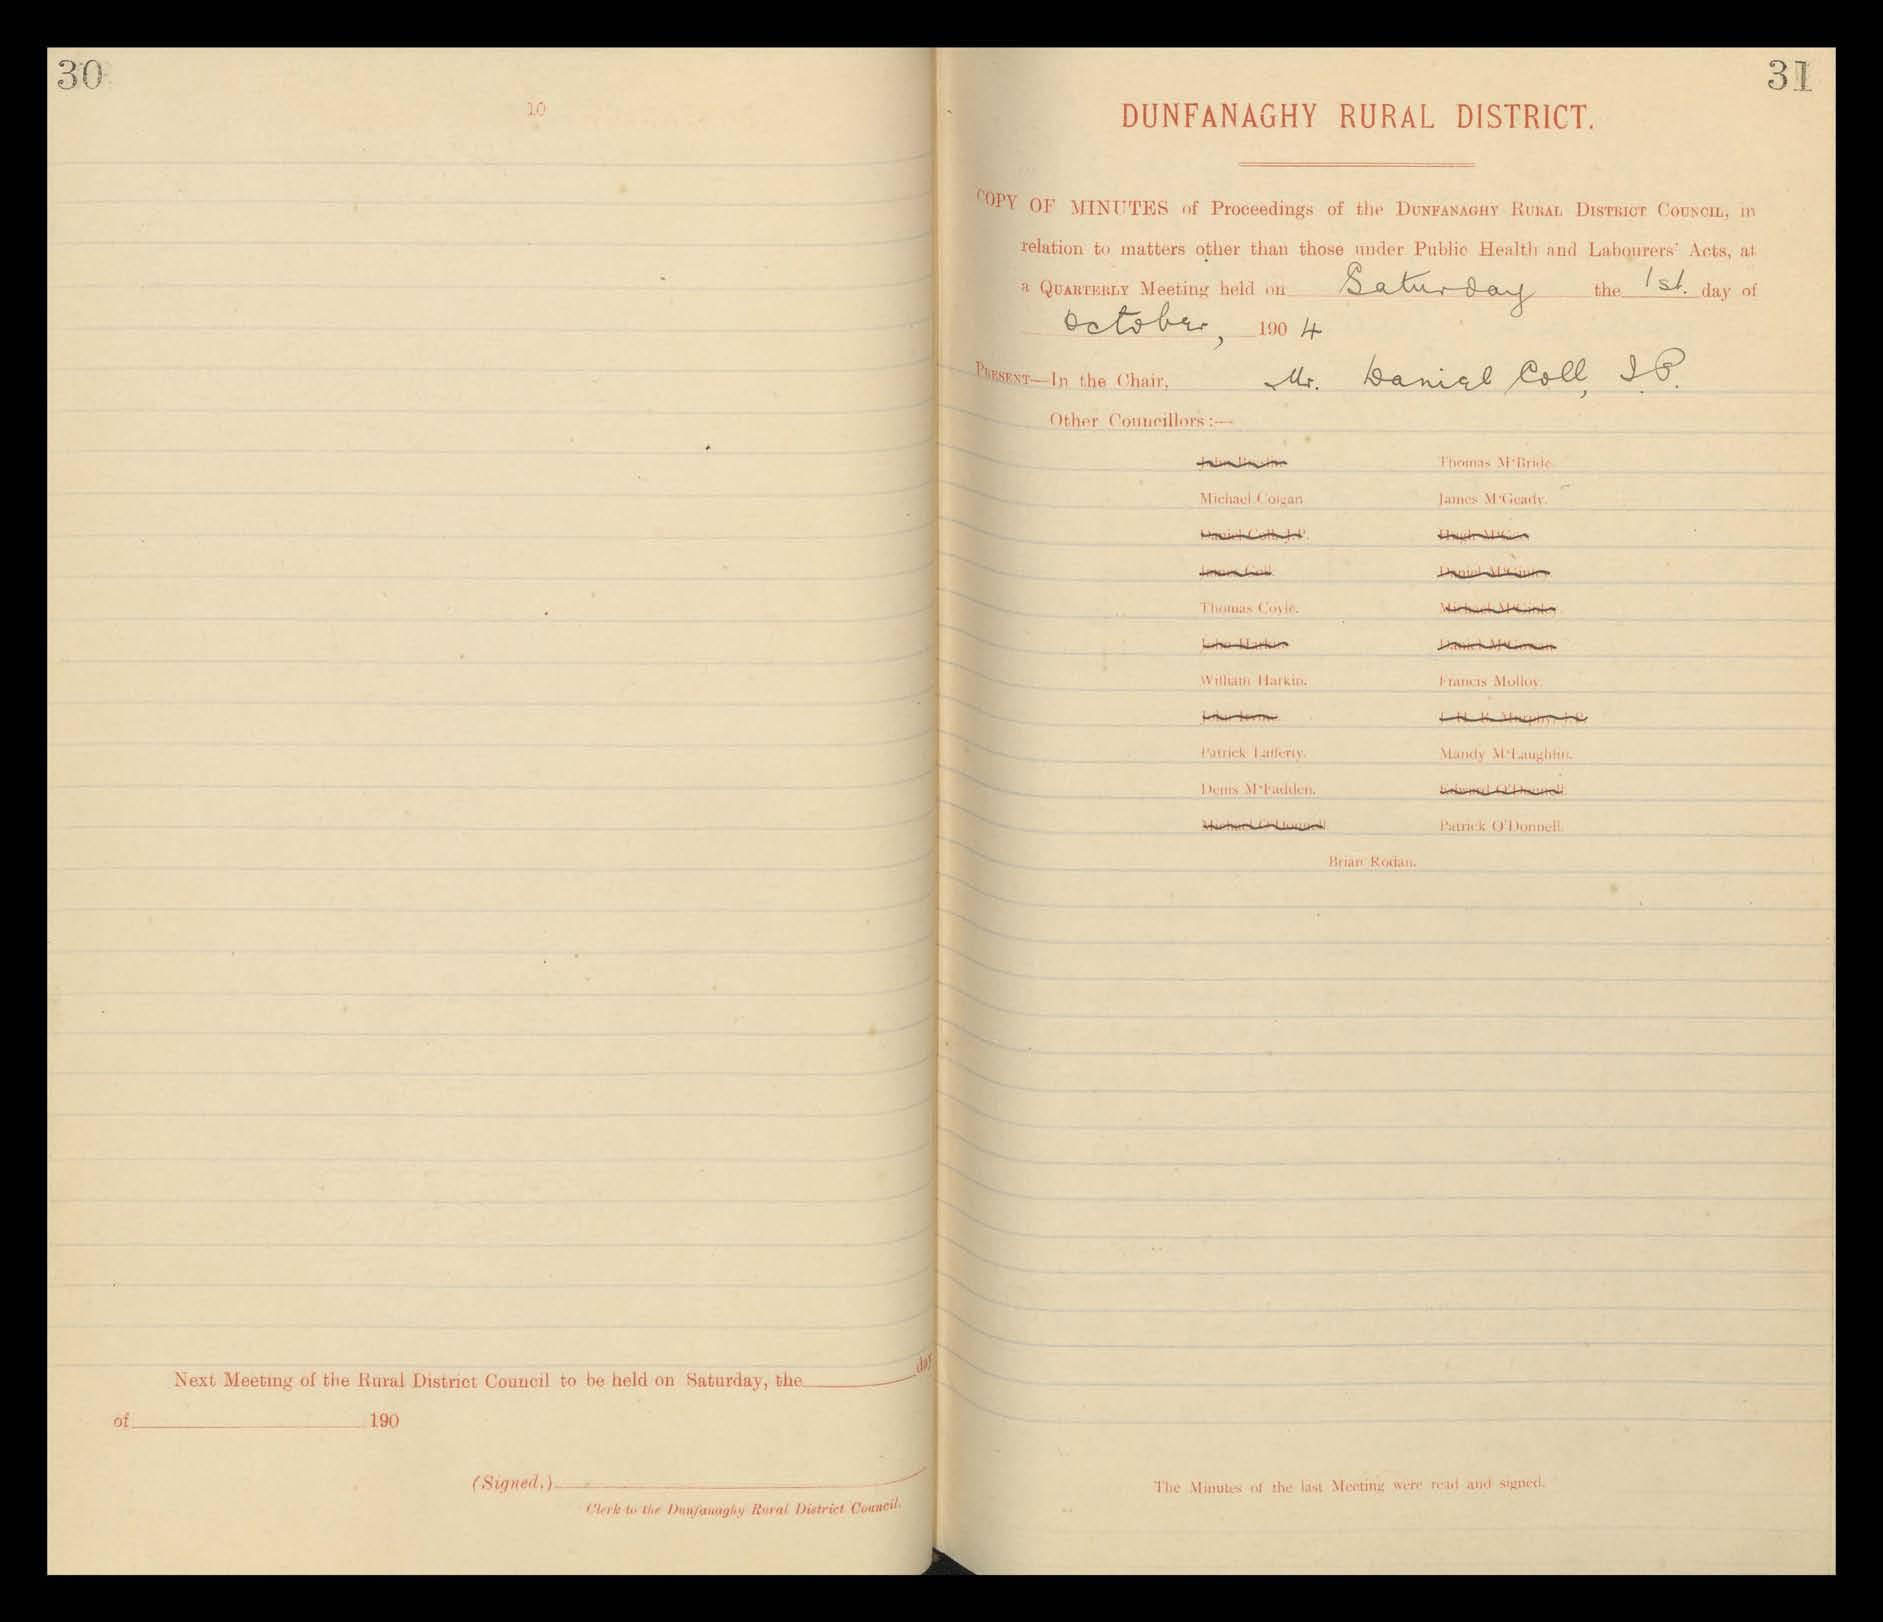 30
10
Next Meeting of the Rural District Council to be held on Saturday, the day
of 190
(Signed.)
Clerk to the Dunfanaghy Rural District Council.
31
DUNFANAGHY RURAL DISTRICT.
COPY OF MINUTES of Proceedings of the DUNFANAGHY RURAL DISTRICT COUNCIL, in
relation to matters other than those under Public Health and Labourers' Acts, at
a QUARTERLY Meeting held on Saturday the 1st. day of
October, 1904
PRESENT—In the Chair, Mr. Daniel Coll, J.P.
Other Councillors:—
Thomas M'Bride.
Michael Colgan James M'Geady.
Daniel Coll, J.P.
Daniel M'Ginley
Thomas Coyle. Michael M'Ginley
John Harkin
William Harkin. Francis Molloy.
Patrick Lafferty. Mandy M'Laughlin.
Denis M'Fadden. Edward O'Donnell
Michael O'Donnell Patrick O'Donnell.
Brian Rodan.
The Minutes of the last Meeting were read and signed.